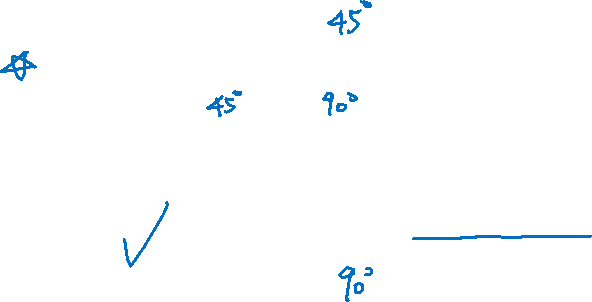 45°
45° 90°
90°